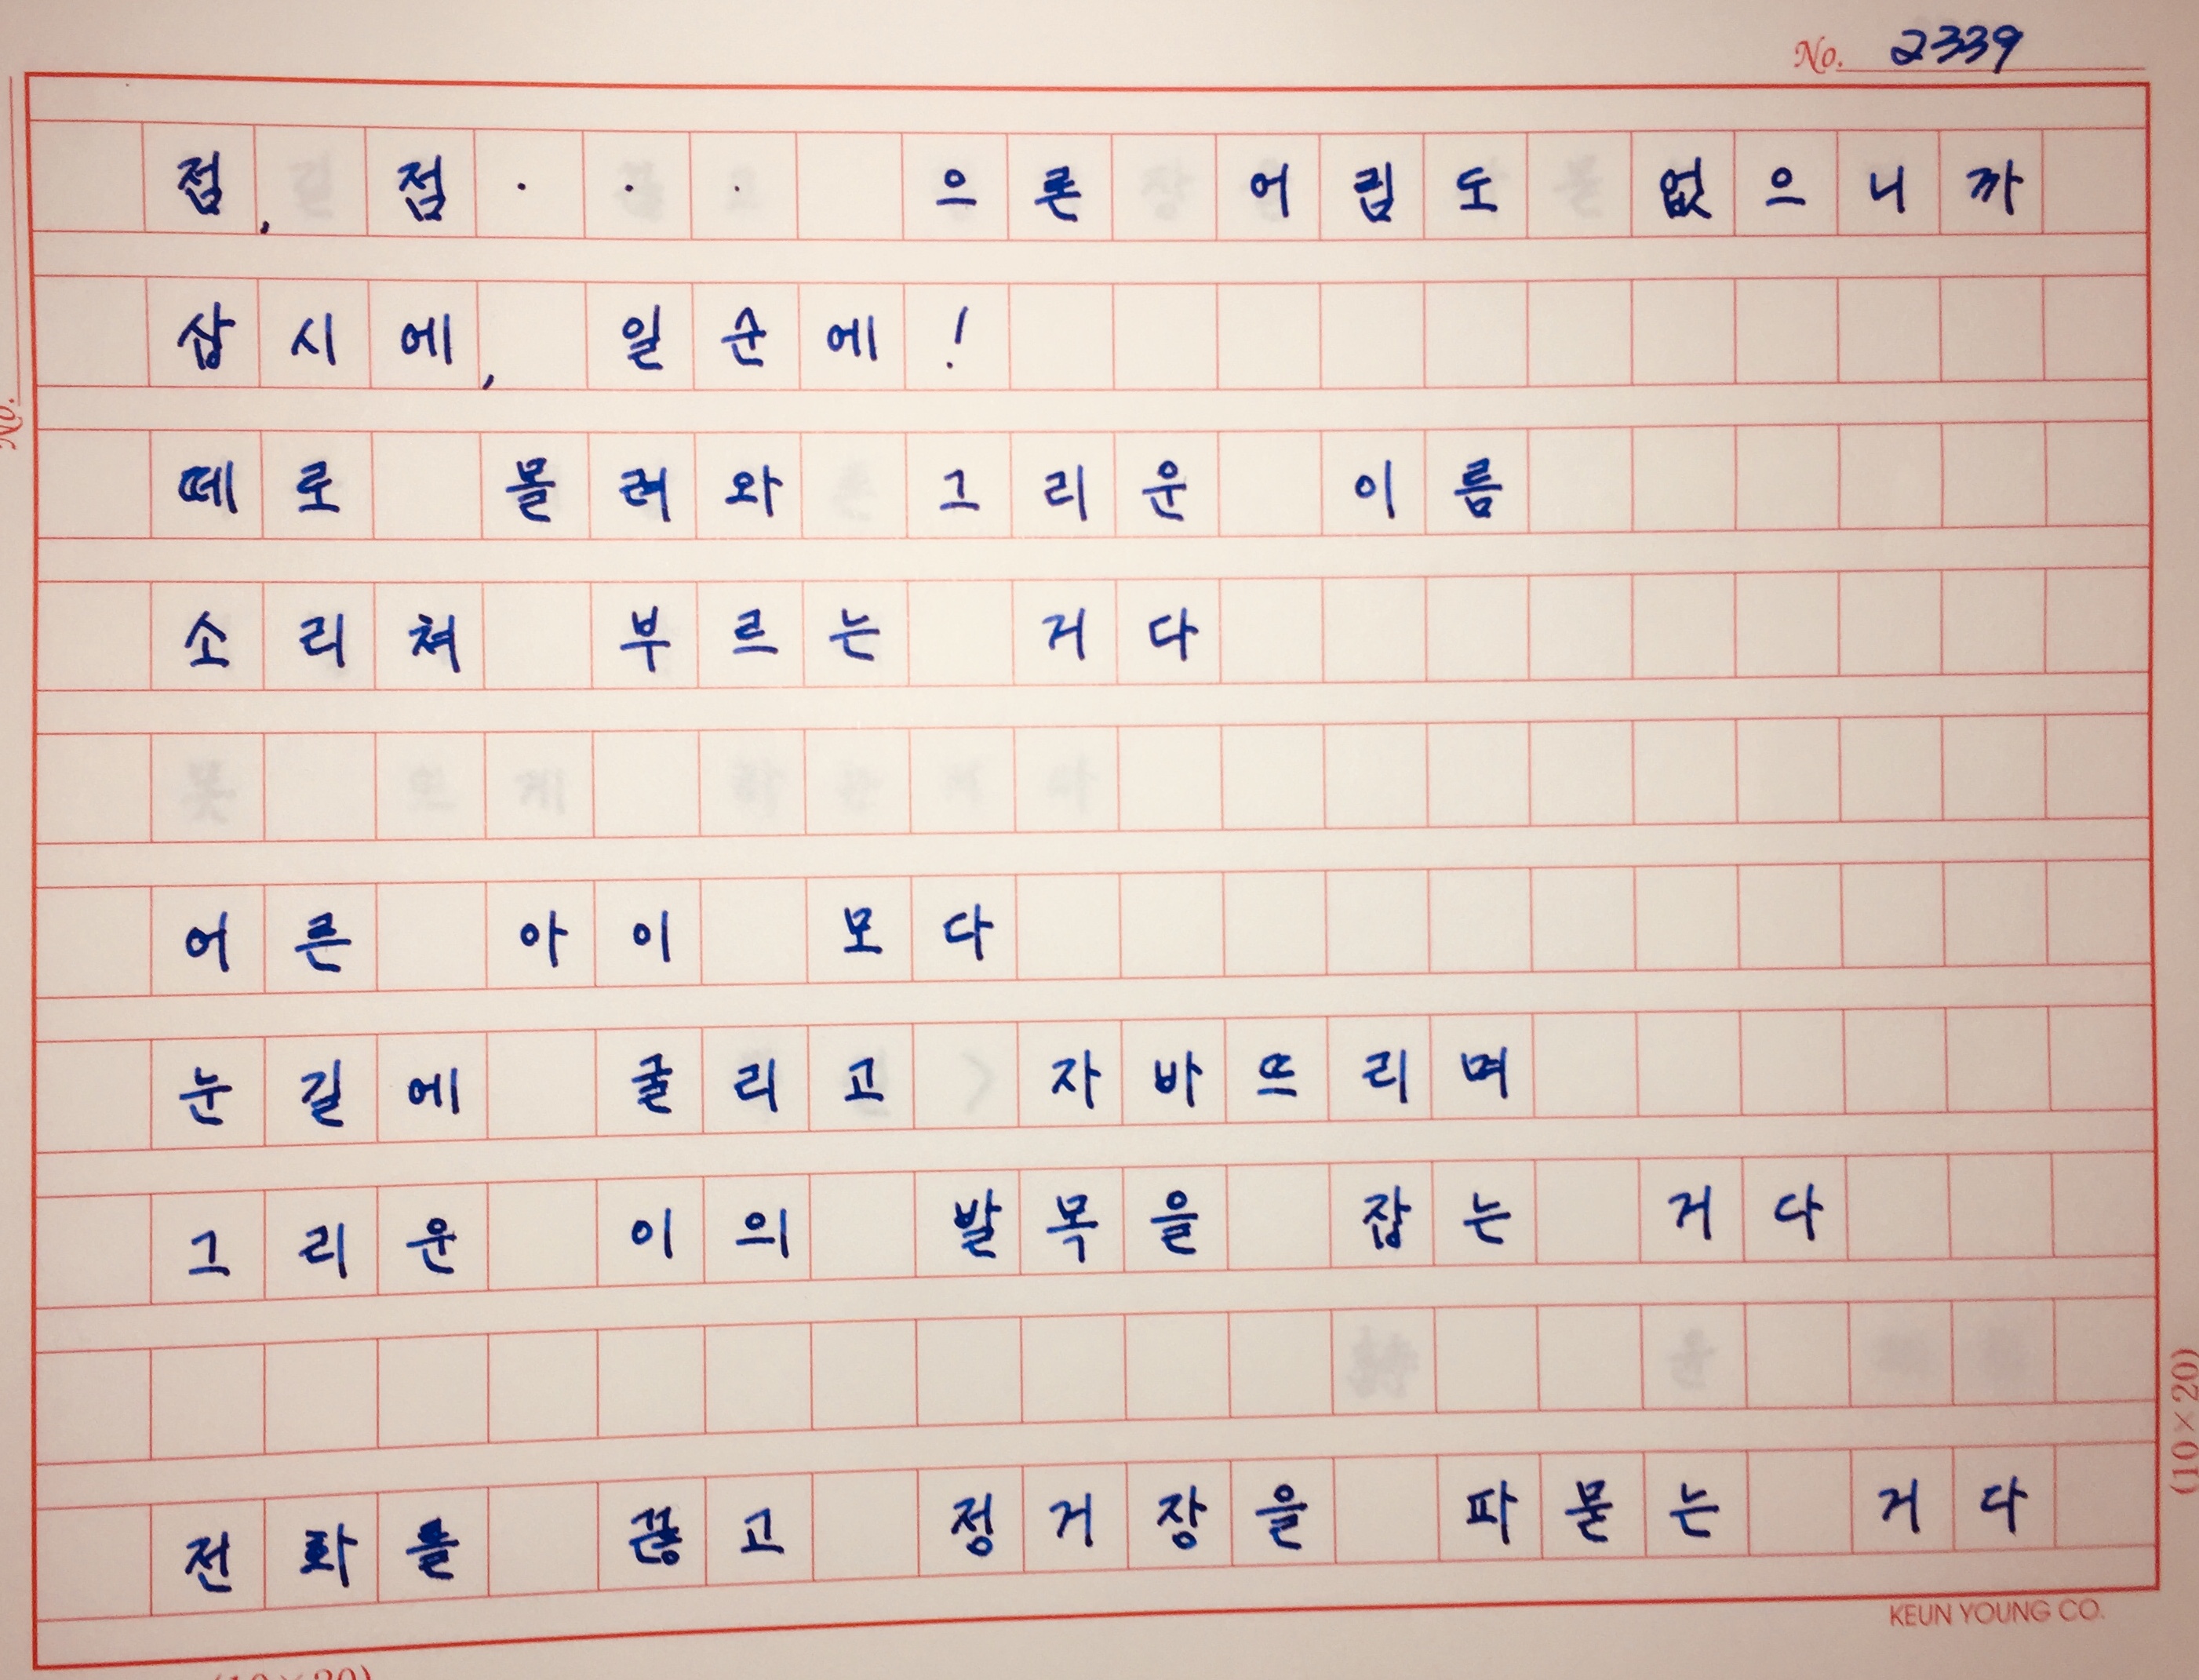 No. 2339
점, 점··· 으론 어림도 없으니까
삽시에, 일순에!
떼로 몰려와 그리운 이름
소리쳐 부르는 거다
어른 아이 모다
눈길에 굴리고 자바뜨리며
그리운 이의 발목을 잡는 거다
전화를 끊고 정거장을 파묻는 거다
KEUN YOUNG CO.
(10×20)
No.